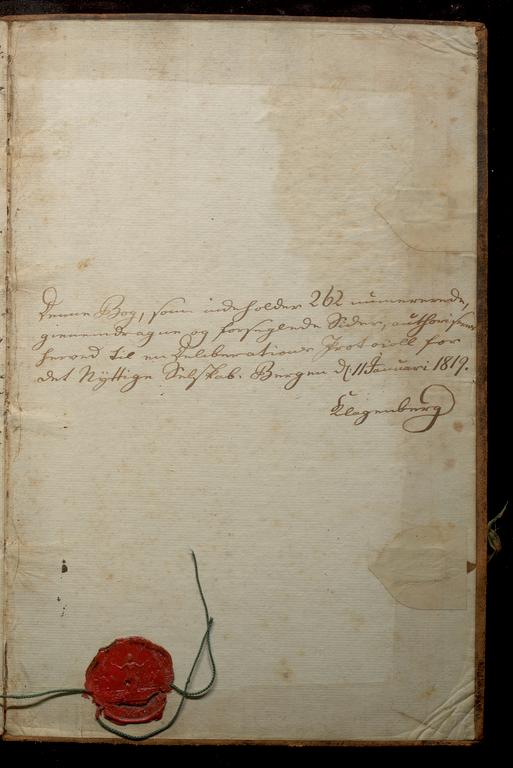 Denne Bog, som indeholder 262 numererede,
giennemdragne og forseglede Sider, authoriseres
herved til en Deliberations Protocoll for
det Nyttige Selskab. Bergen d. 11 Januari 1819.
Klagenberg